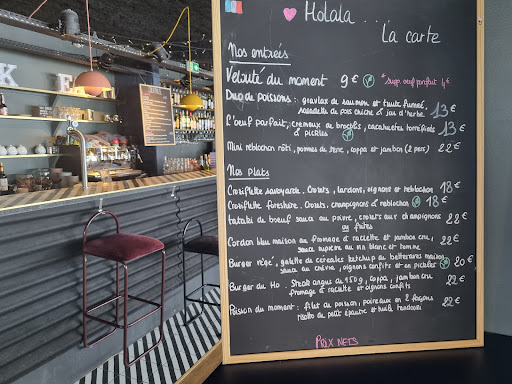 Holala...
La carte
Nos entrées
Velouté du moment 9€ *supp. oeuf parfait 4€
Duo de poissons: gravlax de saumon et truite fumée,
salade de pois chiche & jus d'herbe 13€
L'oeuf parfait, crémeux de brocolis, cacahuètes torréfiées
& pickles 13€
Mini reblochon rôti, pommes de terre, coppa et jambon (2 pers) 22€
Nos plats
Croziflette savoyarde. Crozets, lardons, oignons et reblochon 18€
Croziflette forestière. Crozets, champignons & reblochon 18€
Tataki de boeuf sauce au poivre, crozets aux champignons
ou frites 22€
Cordon bleu maison au fromage à raclette et jambon cru,
sauce suprême au vin blanc et tomme 22€
Burger végé, galette de céréales ketchup de betteraves maison
sauce au chèvre, oignons confits et en pickles 20€
Burger du Ho. Steak angus de 150g, coppa, jambon cru
fromage à raclette et oignons confits 22€
Poisson du moment: filet de poisson, poireaux en 2 façons
risotto de petit épautre et huile 22€
PRIX NETS
K E